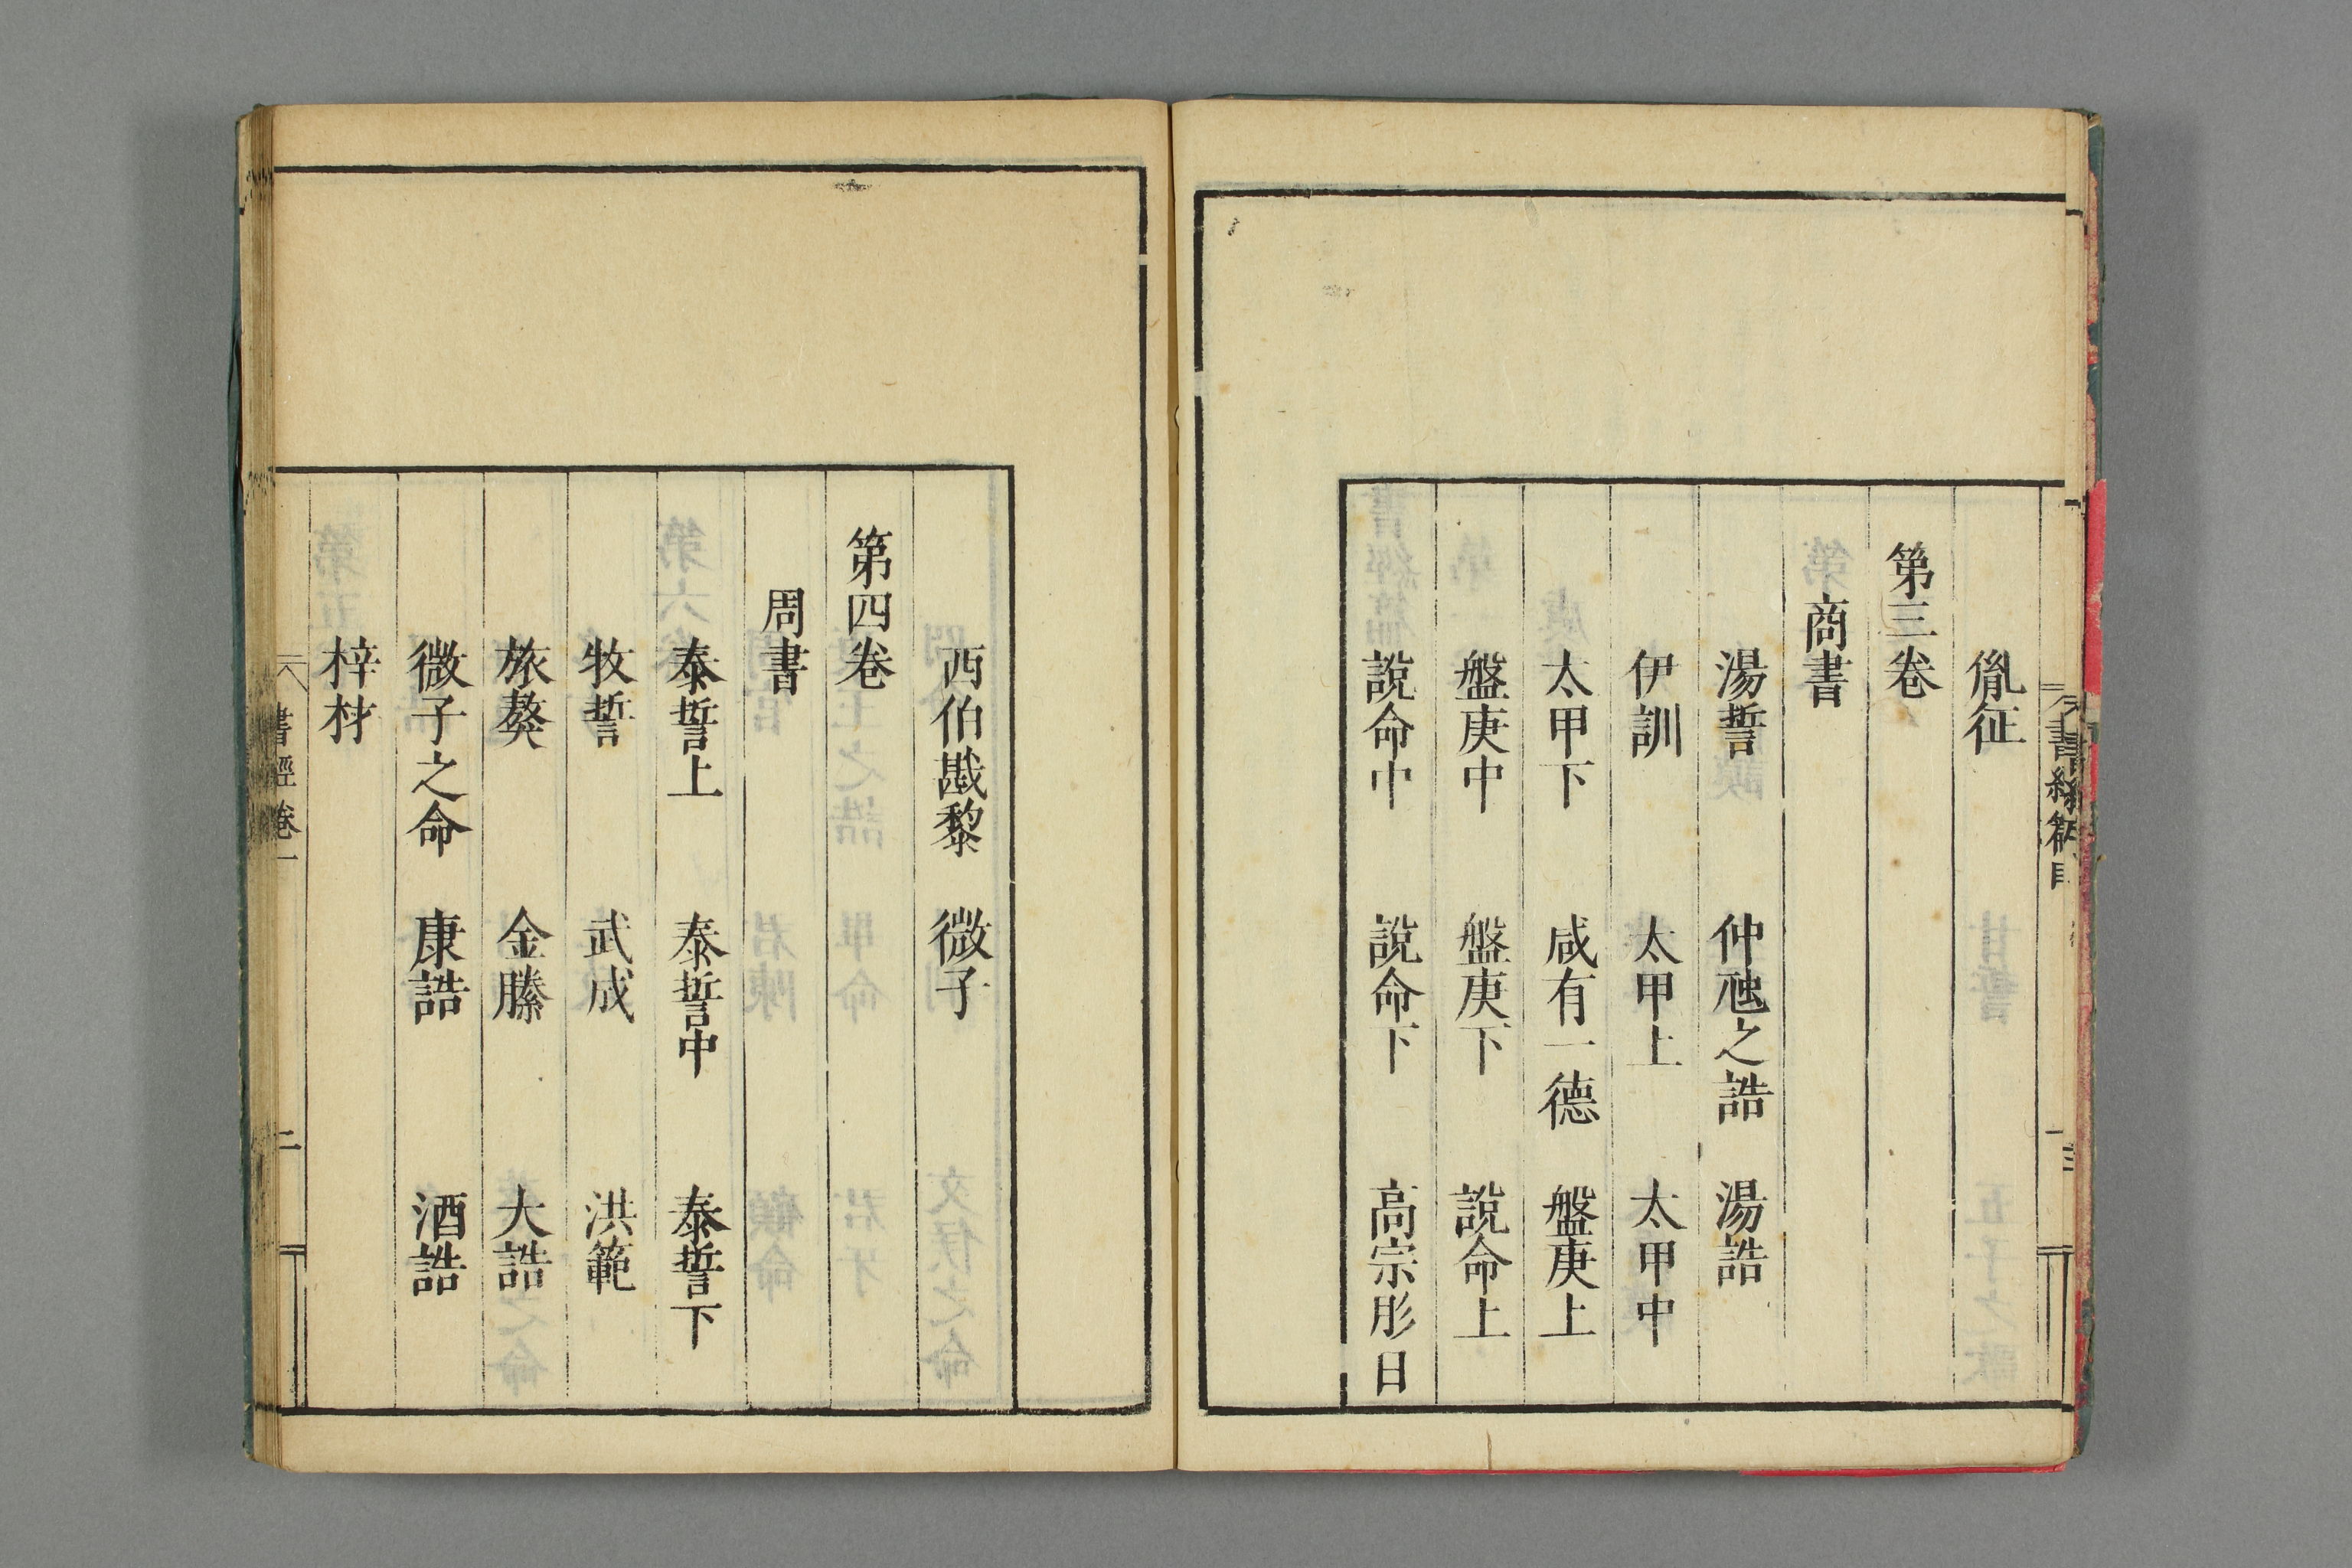 胤征
第三卷
商書
湯誓 仲虺之誥 湯誥
伊訓 太甲上 太甲中
太甲下 咸有一德 盤庚上
盤庚中 盤庚下 說命上
說命中 說命下 高宗肜日
西伯戡黎 微子
第四卷
周書
泰誓上 泰誓中 泰誓下
牧誓 武成 洪範
旅獒 金縢 大誥
微子之命 康誥 酒誥
梓材
書經卷一
二